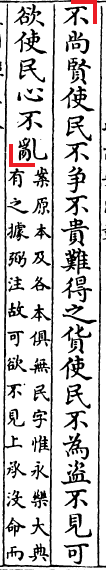 不尚賢使民不爭不貴難得之貨使民不為盗不見可
欲使民心不亂
案原本及各本俱無民字惟永樂大典
有之據弼注故可欲不見上承沒命而